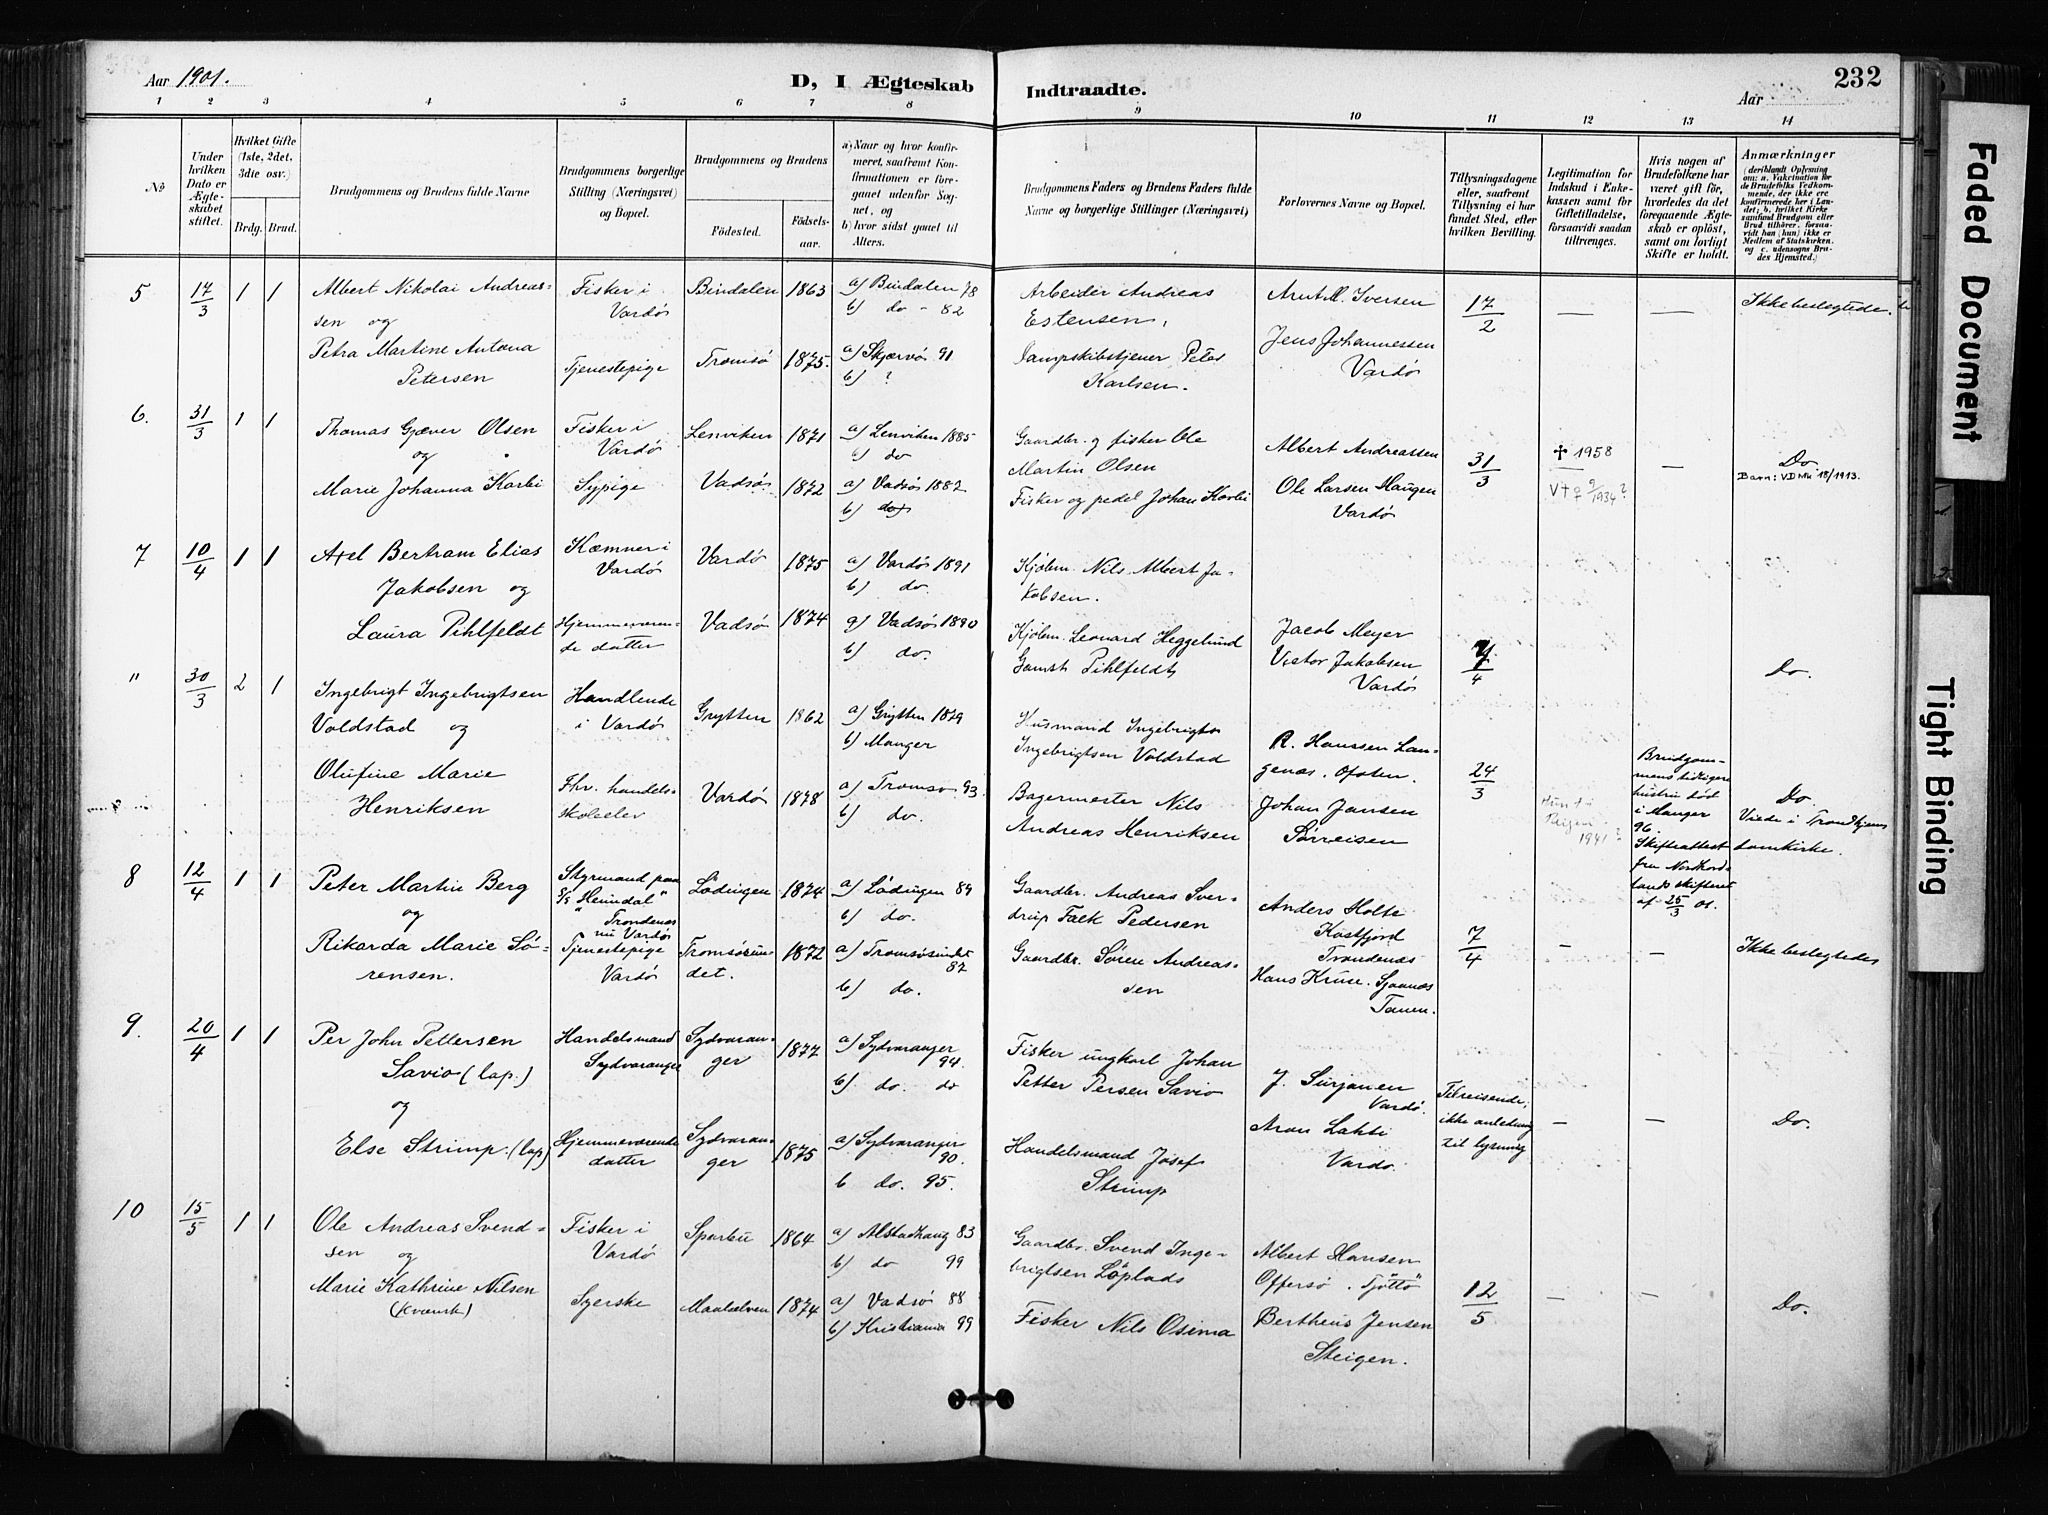 Aar 1901.
D, I Ægteskab Indtraadte.
Aar
232
1 2 3 4 5 6 7 8 9 10 11 12 13 14
No
Under hvilken Dato er Ægteskabet stiftet.
Hvilket Gifte (1ste, 2det, 3die osv.)
Brdg. Brud.
Brudgommens og Brudens fulde Navne
Brudgommens borgerlige Stilling (Næringsvei) og Bopæl.
Brudgommens og Brudens
Fødested.
Fødselsaar.
a) Naar og hvor konfirmeret, saafremt Konfirmationen er foregaaet udenfor Sognet, og
b) hvor sidst gaaet til Alters.
Brudgommens Faders og Brudens Faders fulde Navne og borgerlige Stillinger (Næringsvei)
Forlovernes Navne og Bopæl.
Tillysningsdagene eller, saafremt Tillysning ei har fundet Sted, efter hvilken Bevilling.
Legitimation for Indskud i Enkekassen samt for Giftetilladelse, forsaavidt saadan tiltrænges.
Hvis nogen af Brudefolkene har været gift før, hvorledes da det foregaaende Ægteskab er opløst, samt om lovligt Skifte er holdt.
Anmærkninger
(deriblandt Oplysning om: a. Vakcination for de Brudefolks Vedkommende, der ikke ere konfirmerede her i Landet; b. hvilket Kirkesamfund Brudgom eller Brud tilhører, forsaavidt han (hun) ikke er Medlem af Statskirken, og c. udensogns Brudes Hjemsted.)
5 17/3 1 1
Albert Nikolai Andreassen og
Petra Martine Antona Petersen
Fisker i Vardø
Tjenestepige
Bindalen 1863
Tromsø 1875.
a) Bindalen 78
b) do - 82
a) Skjærvø 91
b) ?
Arbeider Andreas Estensen,
Dampskibstjener Peter Karlsen.
Arnt M. Iversen
Jens Johannessen
Vardø
17/2
Ikke beslegtede.
6. 31/3 1 1
Thomas Gjæver Olsen
og
Marie Johanna Karbi
Fisker i Vardø
Sypige
Lenviken 1871
Vadsø 1872
a) Lenviken 1885
b) do
a) Vadsø 1887
b) do
Gaardbr. og fisker Ole Martin Olsen
Fisker og pedel Johan Korbi
Albert Andreassen
Ole Larsen Haugen
Vardø
31/3
† 1958
V † 9/9 1934?
Do
Barn: VD Nr 18/1913.
7 10/4 1 1
Axel Bertram Elias Jakobsen og
Laura Pihlfeldt
Kæmner i Vardø
Hjemmeværende datter
Vardø 1875
Vadsø 1874
a) Vardø 1891
b) do.
a) Vadsø 1890
b) do.
Kjøbm. Nils Albert Jakobsen.
Kjøbm. Leonard Heggelund
Gamst Pihlfeldt
Jacob Meyer
Victor Jakobsen
Vardø
7/4
Do.
" 30/3 2 1
Ingebrigt Ingebrigtsen
Voldstad og
Olufine Marie Henriksen
Handlende i Vardø
Fhv. handelsskoleelev
Grytten 1862
Vardø 1878
a) Grytten 1879
b) Manger
a) Tromsø 93
b) do.
Husmand Ingebrigt
Ingebrigtsen Voldstad
Bagermester Nils
Andreas Henriksen
R. Hanssen Langenæs. Ofoten.
Johan Jansen
Sørreisen
24/3
1941?
Brudgommens tidligere hustru død i Manger 96. Skifteattest fra Nordhordlands skifteret af 25/3 01.
Do.
Viede i Trondhjems domkirke.
8 12/4 1 1
Peter Martin Berg
og
Rikarda Marie Sørensen.
Styrmand paa S/S "Heimdal" Trondenæs nu Vardø
Tjenestepige Vardø
Lødingen 1874
Tromsøsundet. 1872
a) Lødingen 89
b) do.
a) Tromsøsundet 87
b) do.
Gaardbr. Andreas Sverdrup Falk Pedersen
Gaardbr. Søren Andreassen
Anders Holte
Kastfjord
Trondenæs
Hans Kruse. Sjaanæs
Tanen.
7/4
Ikke beslegtede
9. 20/4 1 1
Per John Pettersen
Savio (lap.)
og
Else Strimp. (lap)
Handelsmand Sydvaranger
Hjemmeværende datter
Sydvaranger 1877
Sydvaranger 1875
a) Sydvaranger 94.
b) do. do
a) Sydvaranger 90.
b do. 95.
Fisker ungkarl Johan
Petter Persen Savio
Handelsmand Josef
Strimp
J. Surjanen
Vardø.
Aron Lahti
Vardø.
Tilreisende; ikke anledning til lysning
Do.
10 15/5 1 1
Ole Andreas Svendsen og
Marie Kathrine Nilsen
(kvensk)
Fisker i Vardø
Syerske
Sparbu 1864
Maalselven 1874
a) Alstadhaug 83
b) do 99
a) Vadsø 88
b) Kristiania 99
Gaardbr. Svend Ingebrigtsen Löplads
Fisker Nils Osima
Albert Hansen
Offersø. Tjøttø
Bertheus Jensen
Steigen.
12/5
Do.
Faded Document
Tight Binding